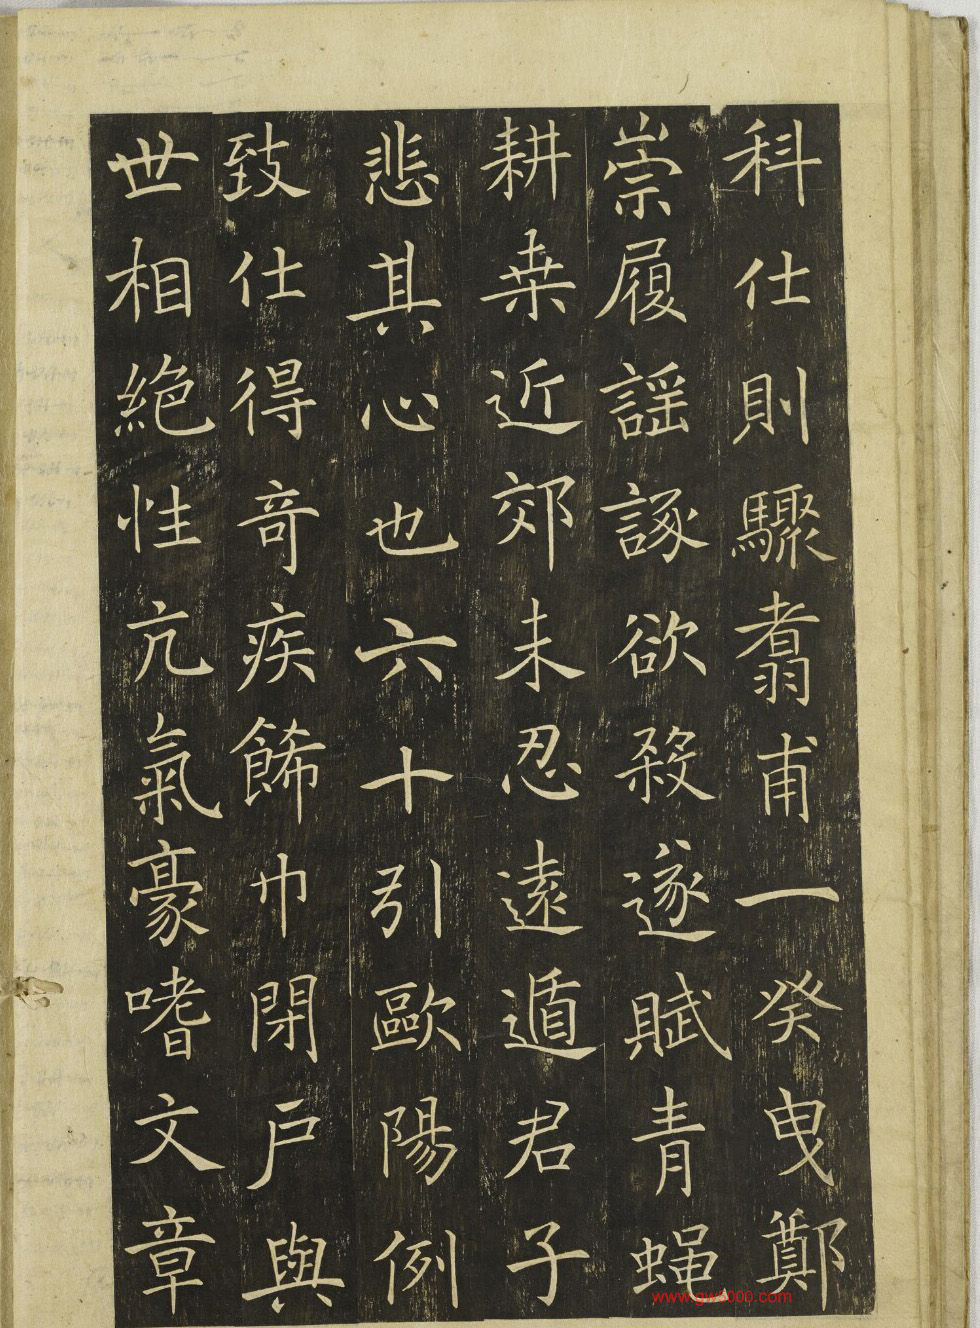 科仕則驟翥甫一癸曳鄭
崇履謡諑欲殺遂賦青蝿
耕桒近郊未忍遠遁君子
悲其心也六十引歐陽例
致仕得竒疾餙巾閇戶與
世相絶性亢氣豪嗜文章
www.gw8000.com